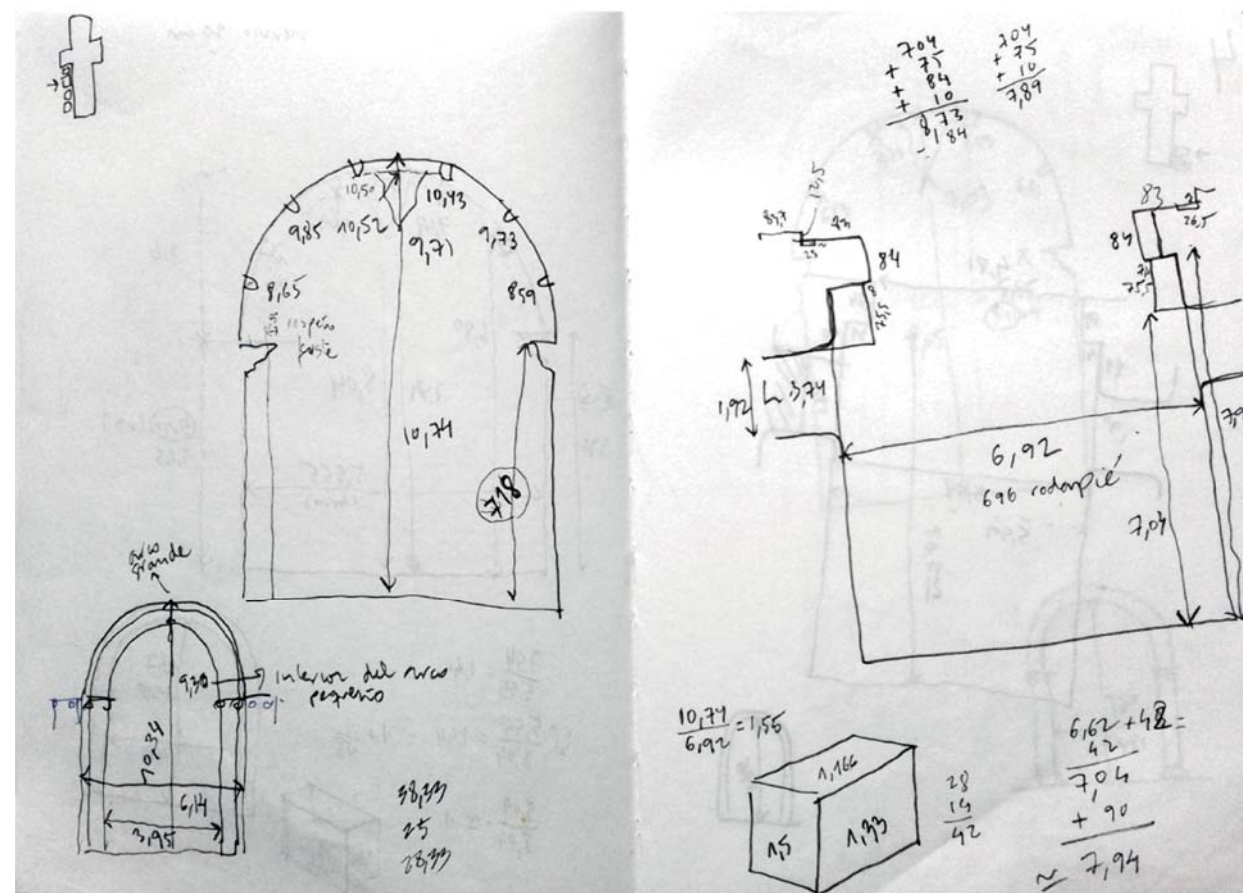 10,50
10,43
9,85
10,52
9,71
9,73
8,65
859
10,74
718
arco
grande
9,30
interior del arco
pequeño
10,34
6,14
3,95
38,33
25
28,33
704
+ 75
+ 84
+ 10
873
184
704
+ 75
+ 10
7,89
12,5
83
25
84
8
75,5
1,92
3,74
83
25
26,5
84
75,5
6,92
696 rodapié
7,04
10,74
6,92
=1,55
1,166
1,5
1,33
28
14
42
6,62 + 42 =
42
7,04
+ 90
≈ 7,94